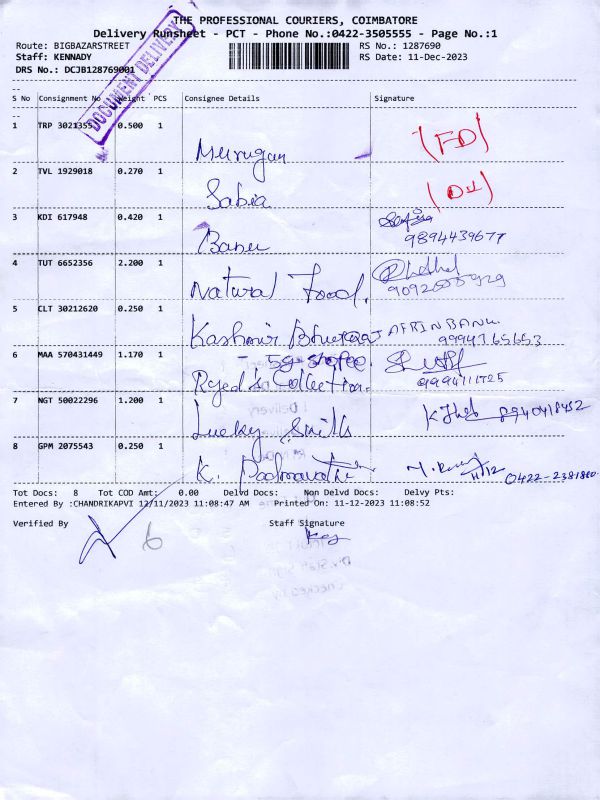 THE PROFESSIONAL COURIERS, COIMBATORE
Delivery Runsheet - PCT - Phone No.:0422-3505555 - Page No.:1
Route: BIGBAZARSTREET RS No.: 1287690
Staff: KENNADY RS Date: 11-Dec-2023
DRS No.: DCJB128769001
DOCUMENT DELIVERY
S No Consignment No Weight PCS Consignee Details Signature
1 TRP 3021355 0.500 1 Murugan (FD)
2 TVL 1929018 0.270 1 Sabia
3 KDI 617948 0.420 1 Banu
9894439677
4 TUT 6652356 2.200 1 Natural Food.
5 CLT 30212620 0.250 1 Kashmir AFRIN BANU.
6 MAA 570431449 1.170 1 Collection.
7 NGT 50022296 1.200 1 Lucky 8940418452
8 GPM 2075543 0.250 1 K. Padmavathi 0422-2381860
Tot Docs: 8 Tot COD Amt: 0.00 Delvd Docs: Non Delvd Docs: Delvy Pts:
Entered By :CHANDRIKAPVI 12/11/2023 11:08:47 AM Printed On: 11-12-2023 11:08:52
Verified By Staff Signature